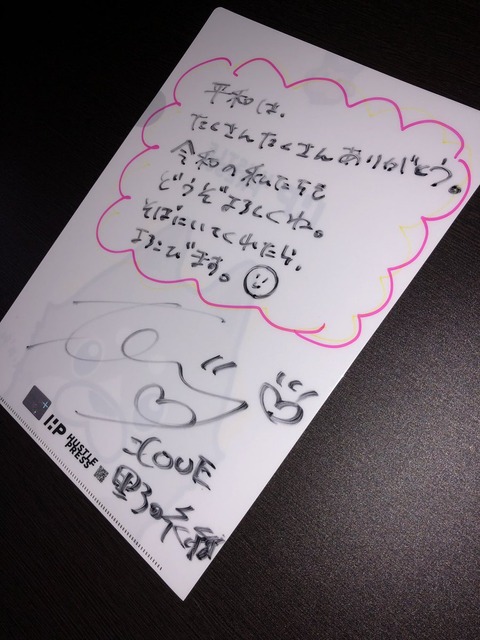 平和は、
たくさんたくさんありがとう。
令和の私たちを
どうぞよろしくね。
そばにいてくれたら、
よろこびます。
HP HUSTLE
PRESS